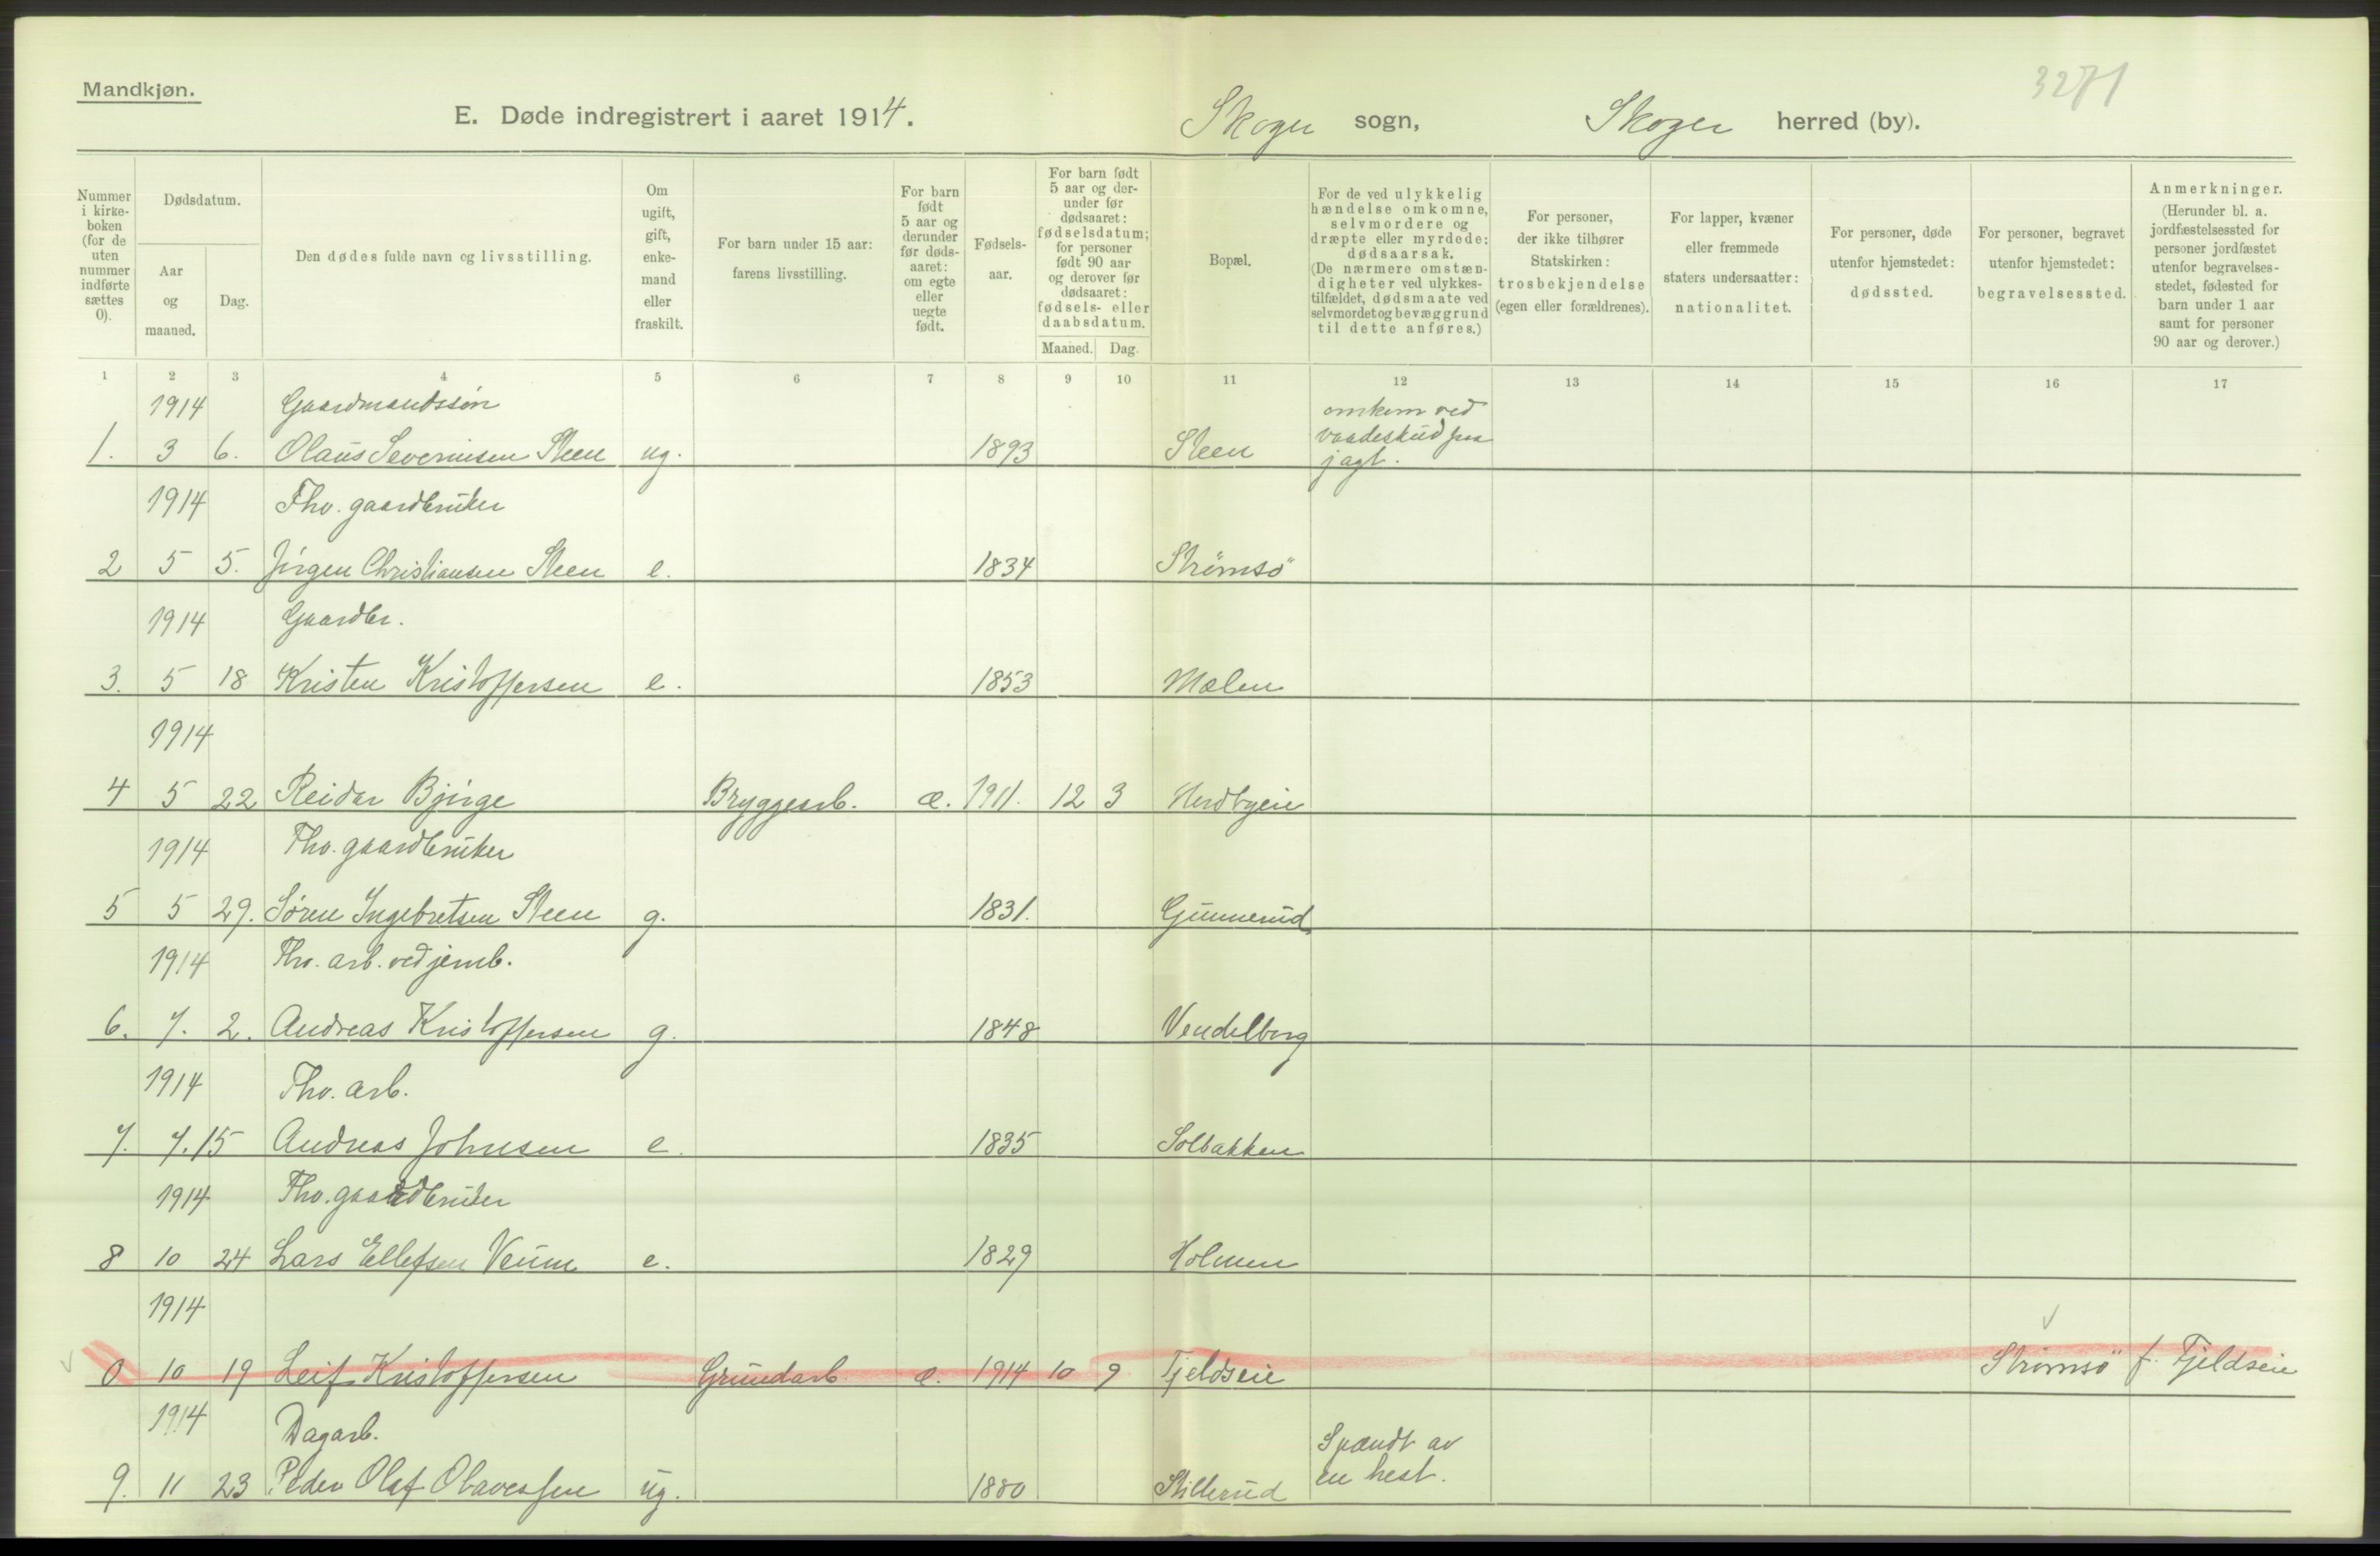 Mandkjøn.
3271
E. Døde indregistrert i aaret 1914. Skoger sogn, Skoger herred (by).
Nummer i kirke- boken (for de uten nummer indførte sættes 0).
Dødsdatum.
Aar og maaned.
Dag.
Den dødes fulde navn og livsstilling.
Om ugift, gift, enke- mand eller fraskilt.
For barn under 15 aar: farens livsstilling.
For barn født 5 aar og derunder før døds- aaret: om egte eller uegte født.
Fødsels- aar.
For barn født 5 aar og der- under før dødsaaret: fødselsdatum; for personer født 90 aar og derover før dødsaaret: fødsels- eller daabsdatum.
Maaned. Dag.
Bopæl.
For de ved ulykkelig hændelse omkomne, selvmordere og dræpte eller myrdede: dødsaarsak. (De nærmere omstæn- digheter ved ulykkes- tilfældet, dødsmaate ved selvmordet og bevæggrund til dette anføres.)
For personer, der ikke tilhører Statskirken: trosbekjendelse (egen eller forældrenes).
For lapper, kvæner eller fremmede staters undersaatter: nationalitet.
For personer, døde utenfor hjemstedet: dødssted.
For personer, begravet utenfor hjemstedet: begravelsessted.
Anmerkninger. (Herunder bl. a. jordfæstelsessted for personer jordfæstet utenfor begravelses- stedet, fødested for barn under 1 aar samt for personer 90 aar og derover.)
1 2 3 4 5 6 7 8 9 10 11 12 13 14 15 16 17
1914 Gaardmandssøn omkom ved
vaadeskud paa
1. 3 6. Olaus Severinsen Steen ug. 1893 Steen jagt.
1914 Fhv. gaardbruker
2 5 5. Jörgen Christiansen Steen e. 1834 Strömsö
1914 Gaardbr.
3. 5 18 Kristen Kristoffersen e. 1853 Mælen
1914
4 5 22 Reidar Björge Bryggearb. æ. 1911. 12 3 Herdbyeie
1914 Fhv. gaardbruker
5 5 29. Søren Ingebretsen Steen g. 1831. Gunnerud
1914 Fhv. arb. ved jernb.
6. 7. 2. Andreas Kristoffersen g. 1848 Vendelborg
1914 Fhv. arb.
7. 7. 15 Andreas Johnsen e. 1835 Solbakken
1914 Fhv. gaardbruker
8 10 24 Lars Ellefsen Veum e. 1829 Holmen
1914
0 10 19 Leif Kristoffersen Grundarb. æ. 1914 10 9 Fjeldseie Strömsö f. Fjeldseie
1914 Dagarb. Spændt av
9. 11 23 Peder Olaf Olavessen ug. 1880 Stillerud en hest.